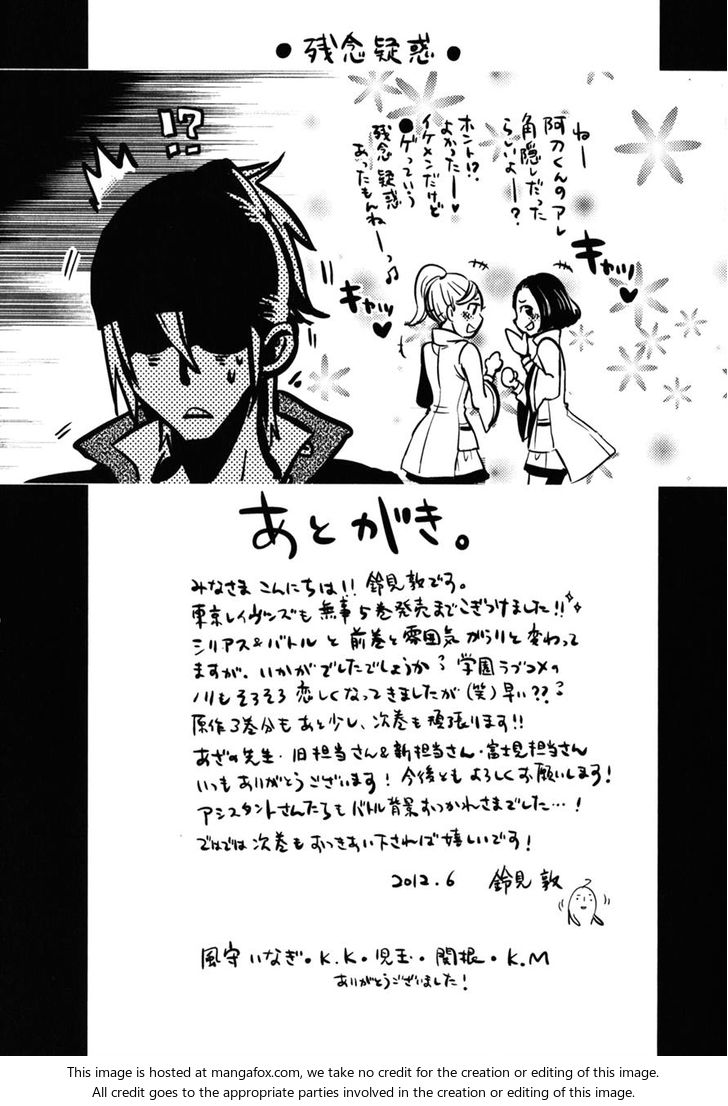 ●残念疑惑●
ねー
阿刀くんのアレ
角隠しだった
らしいよー?
ホント!?
よかったー♥
イケメンだけど
●ゲっていう
残念疑惑
あったもんねーっ♪
キャッ♥
キャッ♥
!?
あとがき。
みなさま こんにちは!! 鈴見敦です。
東京レイヴンズも 無事5巻発売までこぎつけました!!
シリアス&バトル と 前巻と雰囲気 がらりと 変わって
ますが、いかがでしたでしょうか? 学園ラブコメの
ノリも そろそろ 恋しくなってきましたが(笑)早い??
原作3巻分も あと少し、次巻も 頑張ります!!
あざの先生・旧担当さん&新担当さん・富士見担当さん
いつも ありがとうございます! 今後とも よろしくお願いします!
アシスタントさんたちも バトル背景 おつかれさまでした…!
ではでは 次巻も おつきあい下されば 嬉しいです!
2012.6 鈴見 敦
風守いなぎ・K.K・児玉・関根・K.M
ありがとうございました!
This image is hosted at mangafox.com, we take no credit for the creation or editing of this image.
All credit goes to the appropriate parties involved in the creation or editing of this image.